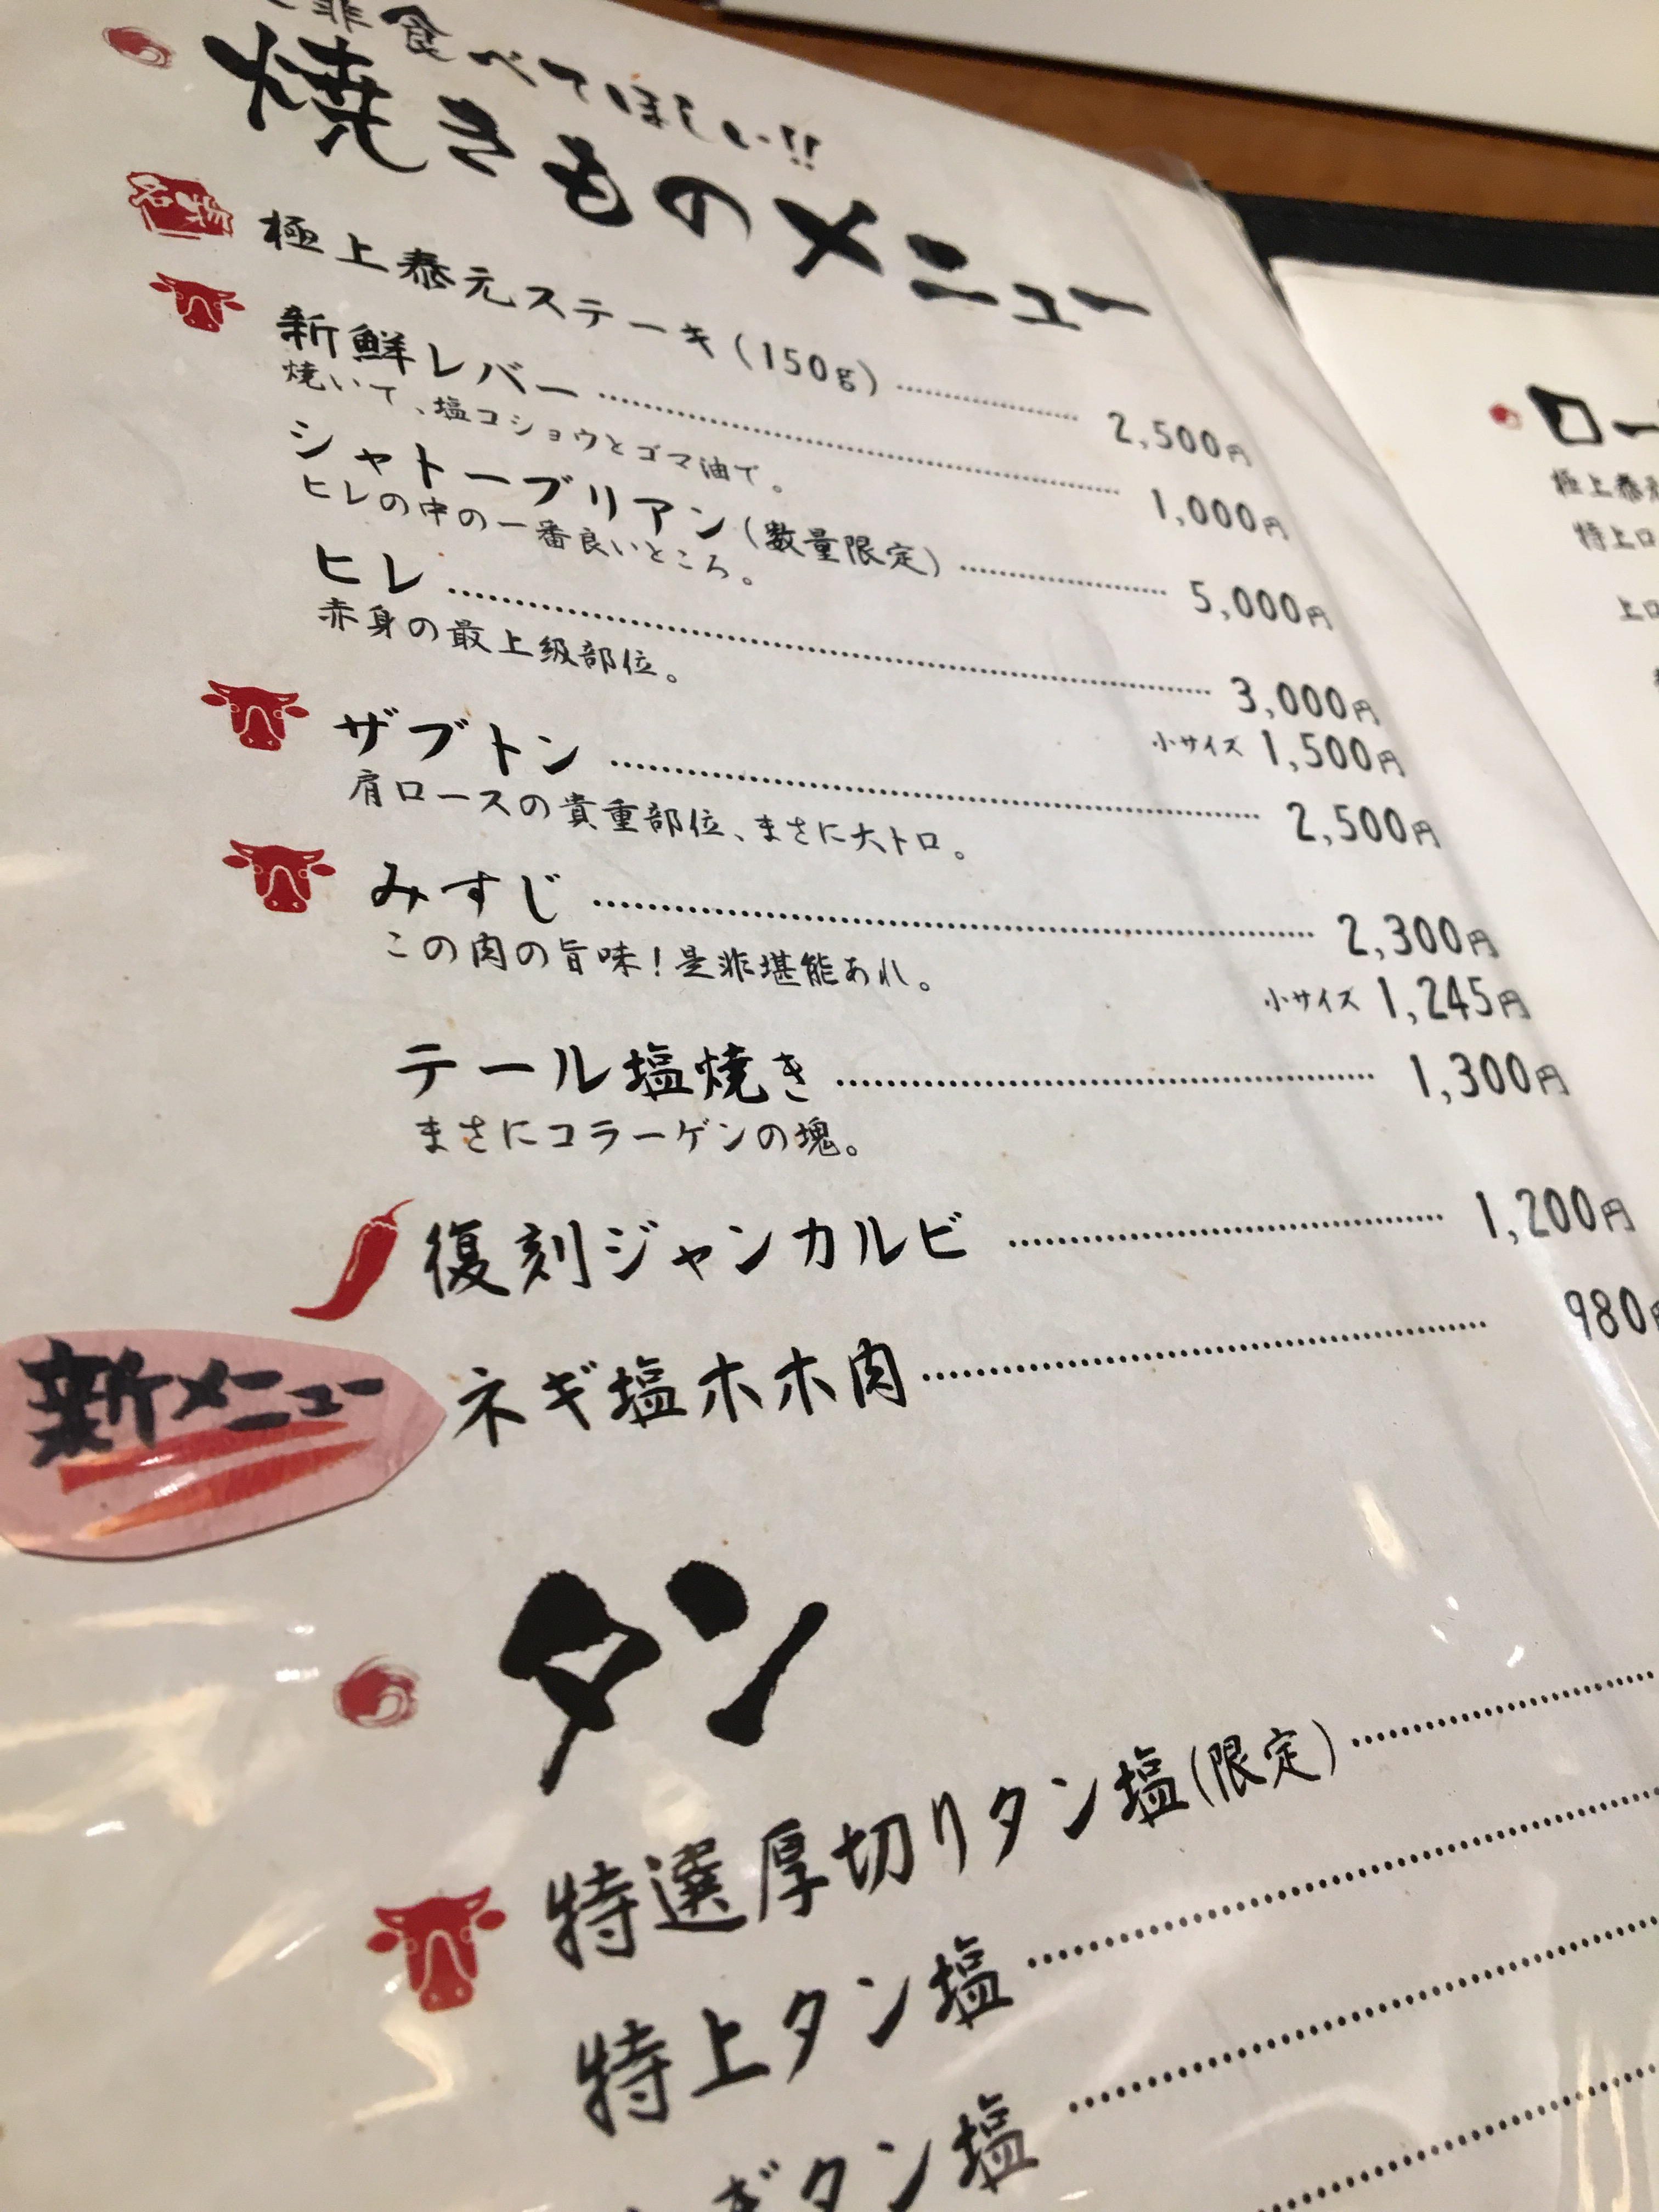 是非食べてほしい!!
焼きものメニュー
名物
極上泰元ステーキ(150g) 2,500円
新鮮レバー 1,000円
焼いて、塩コショウとゴマ油で。
シャトーブリアン(数量限定) 5,000円
ヒレの中の一番良いところ。
ヒレ 3,000円
赤身の最上級部位。
小サイズ 1,500円
ザブトン 2,500円
肩ロースの貴重部位、まさに大トロ。
みすじ 2,300円
この肉の旨味!是非堪能あれ。
小サイズ 1,245円
テール塩焼き 1,300円
まさにコラーゲンの塊。
復刻ジャンカルビ 1,200円
新メニュー
ネギ塩ホホ肉 980円
タン
特選厚切りタン塩(限定)
特上タン塩
ギタン塩
ロー
極上泰元
特上ロ
上ロ